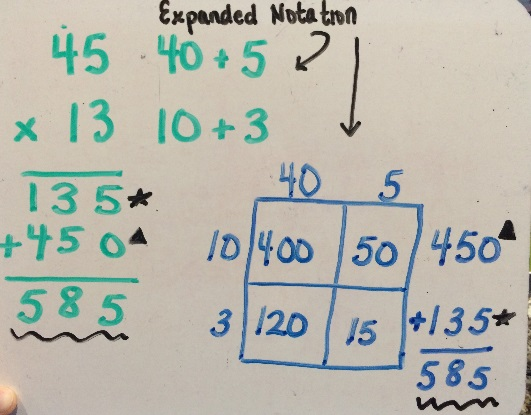 Expanded Notation
45 40 + 5
x 13 10 + 3
135★
+450▲
585
40 5
10 400 50 450▲
3 120 15 +135★
585